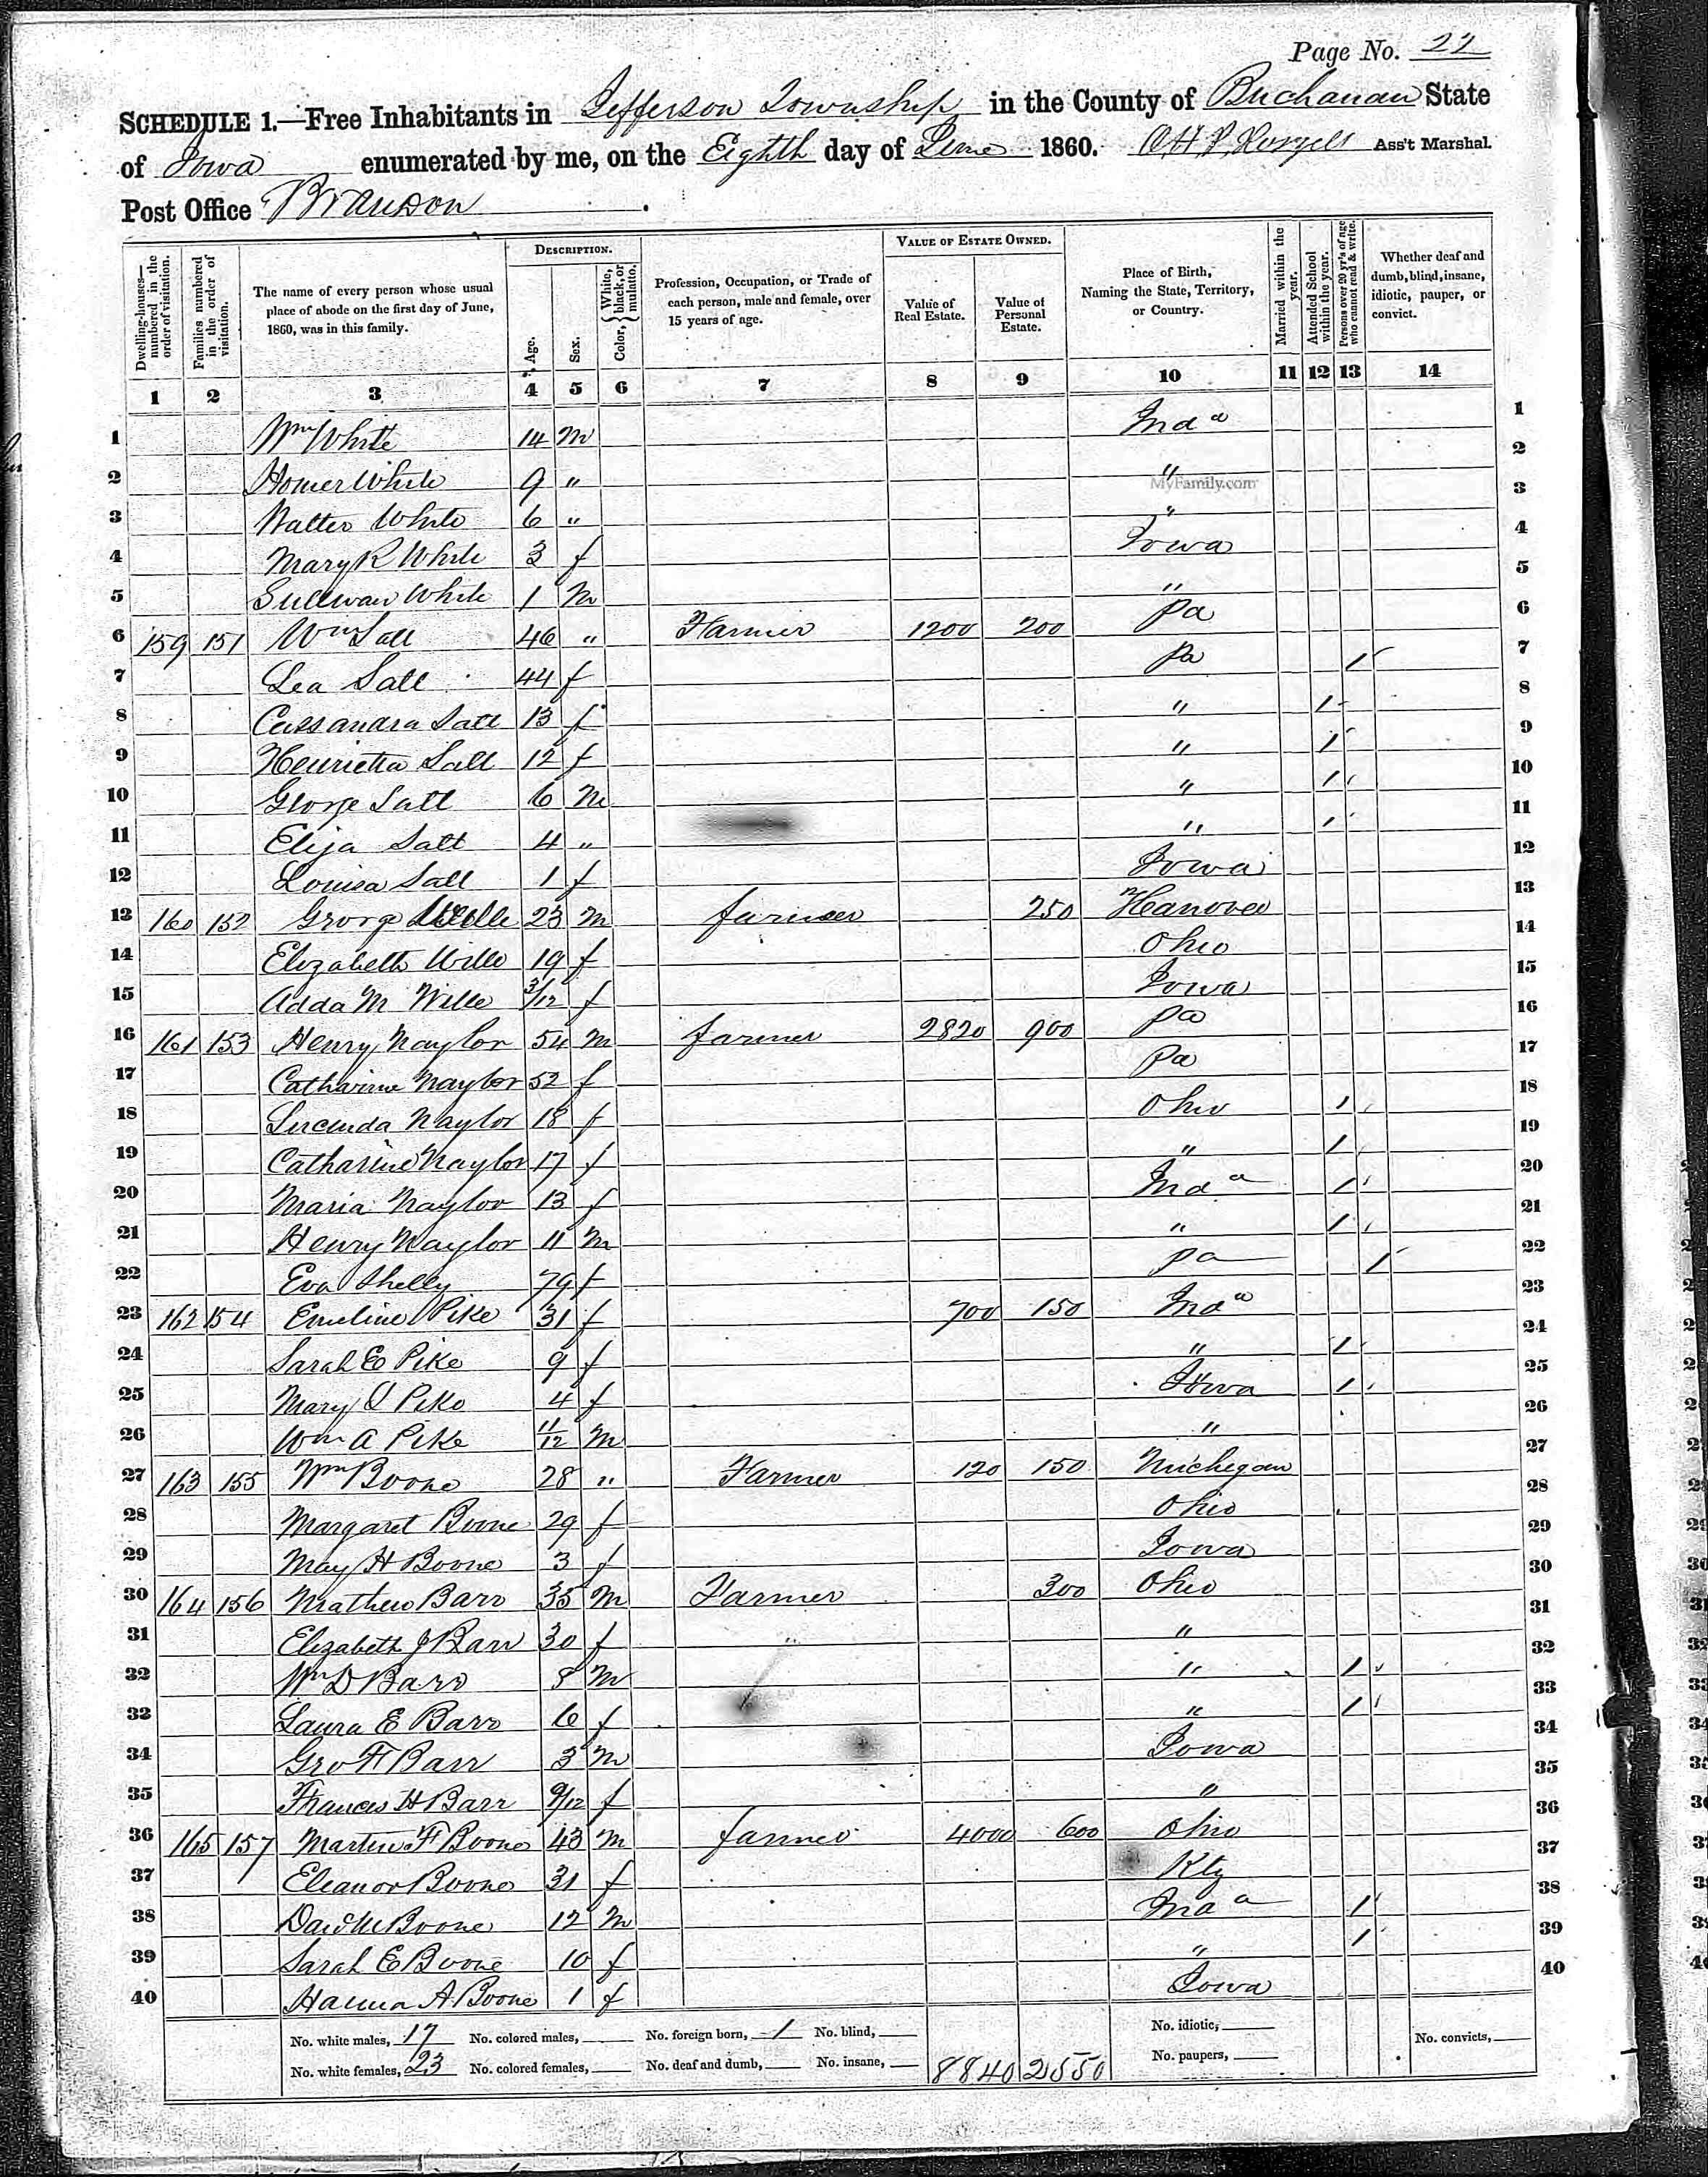 Page No. 22
SCHEDULE 1.—Free Inhabitants in Jefferson Township in the County of Buchanan State
of Iowa enumerated by me, on the Eighth day of June 1860. Ass't Marshal.
Post Office Brandon.
Dwelling-houses—numbered in the order of visitation.
Families numbered in the order of visitation.
The name of every person whose usual place of abode on the first day of June, 1860, was in this family.
DESCRIPTION.
Age.
Sex.
Color, { White, black, or mulatto.
Profession, Occupation, or Trade of each person, male and female, over 15 years of age.
VALUE OF ESTATE OWNED.
Value of Real Estate.
Value of Personal Estate.
Place of Birth, Naming the State, Territory, or Country.
Married within the year.
Attended School within the year.
Persons over 20 yr's of age who cannot read & write.
Whether deaf and dumb, blind, insane, idiotic, pauper, or convict.
1 2 3 4 5 6 7 8 9 10 11 12 13 14
1 Wm White 14 M Inda 1
2 Homer White 9 " " 2
MyFamily.com
3 Walter White 6 " " 3
4 Mary R White 3 f Iowa 4
5 Sullivan White 1 M " 5
6 159 151 Wm Salt 46 " Farmer 1200 200 Pa 6
7 Lea Salt 44 f Pa 1 7
8 Cassandra Salt 13 f " 1 8
9 Henrietta Salt 12 f " 1 9
10 George Salt 6 M " 1 10
11 Elija Salt 4 " " 1 11
12 Louisa Salt 1 f Iowa 12
13 160 152 George Wille 23 M farmer 250 Hanover 13
14 Elizabeth Wille 19 f Ohio 14
15 Adda M Wille 3/12 f Iowa 15
16 161 153 Henry Naylor 54 M farmer 2820 900 Pa 16
17 Catharine Naylor 52 f Pa 17
18 Lucinda Naylor 18 f Ohio 1 18
19 Catharine Naylor 17 f " 1 19
20 Maria Naylor 13 f Inda 1 20
21 Henry Naylor 11 M " 1 21
22 Eva Shelly 79 f Pa 1 22
23 162 154 Emeline Pike 31 f 700 150 Inda 23
24 Sarah E Pike 9 f " 1 24
25 Mary J Pike 4 f Iowa 1 25
26 Wm A Pike 11/12 M " 26
27 163 155 Wm Boone 28 " Farmer 120 150 Michegan 27
28 Margaret Boone 29 f Ohio 28
29 May H Boone 3 f Iowa 29
30 164 156 Mathew Barr 35 M Farmer 300 Ohio 30
31 Elizabeth J Barr 30 f " 31
32 Wm D Barr 8 M " 1 32
32 Laura E Barr 6 f " 1 33
34 Geo F Barr 3 M Iowa 34
35 Frances H Barr 9/12 f " 35
36 165 157 Martin F Boone 43 M farmer 4000 600 Ohio 36
37 Eleanor Boone 31 f Kty 37
38 Boone 12 M Inda 1 38
39 Sarah E Boone 10 f " 1 39
40 Hanna A Boone 1 f Iowa 40
No. white males, 17 No. colored males, No. foreign born, 1 No. blind, No. idiotic, No. convicts,
No. white females, 23 No. colored females, No. deaf and dumb, No. insane, 8840 2550 No. paupers,